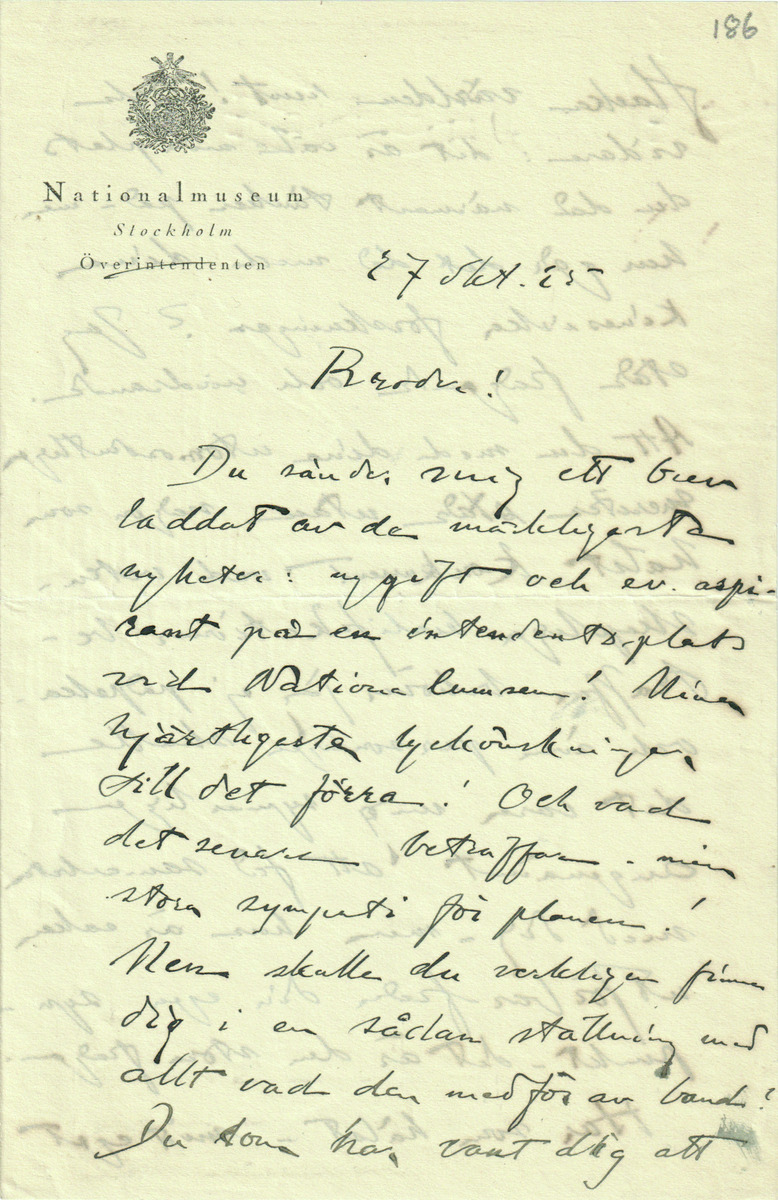 186
Nationalmuseum
Stockholm
Överintendenten
27 Okt. 25
Broder!
Du sänder mig ett brev
laddat av de märkligaste
nyheter: nygift och ev. aspi-
rant på en intendentsplats
vid Nationalmuseum! Mina
hjärtligaste lyckönskningar
till det förra! Och vad
det senare beträffar - min
stora sympati för planen!
Men skulle du verkligen finna
dig i en sådan ställning med
allt vad den medför av band?
Du som har vant dig att